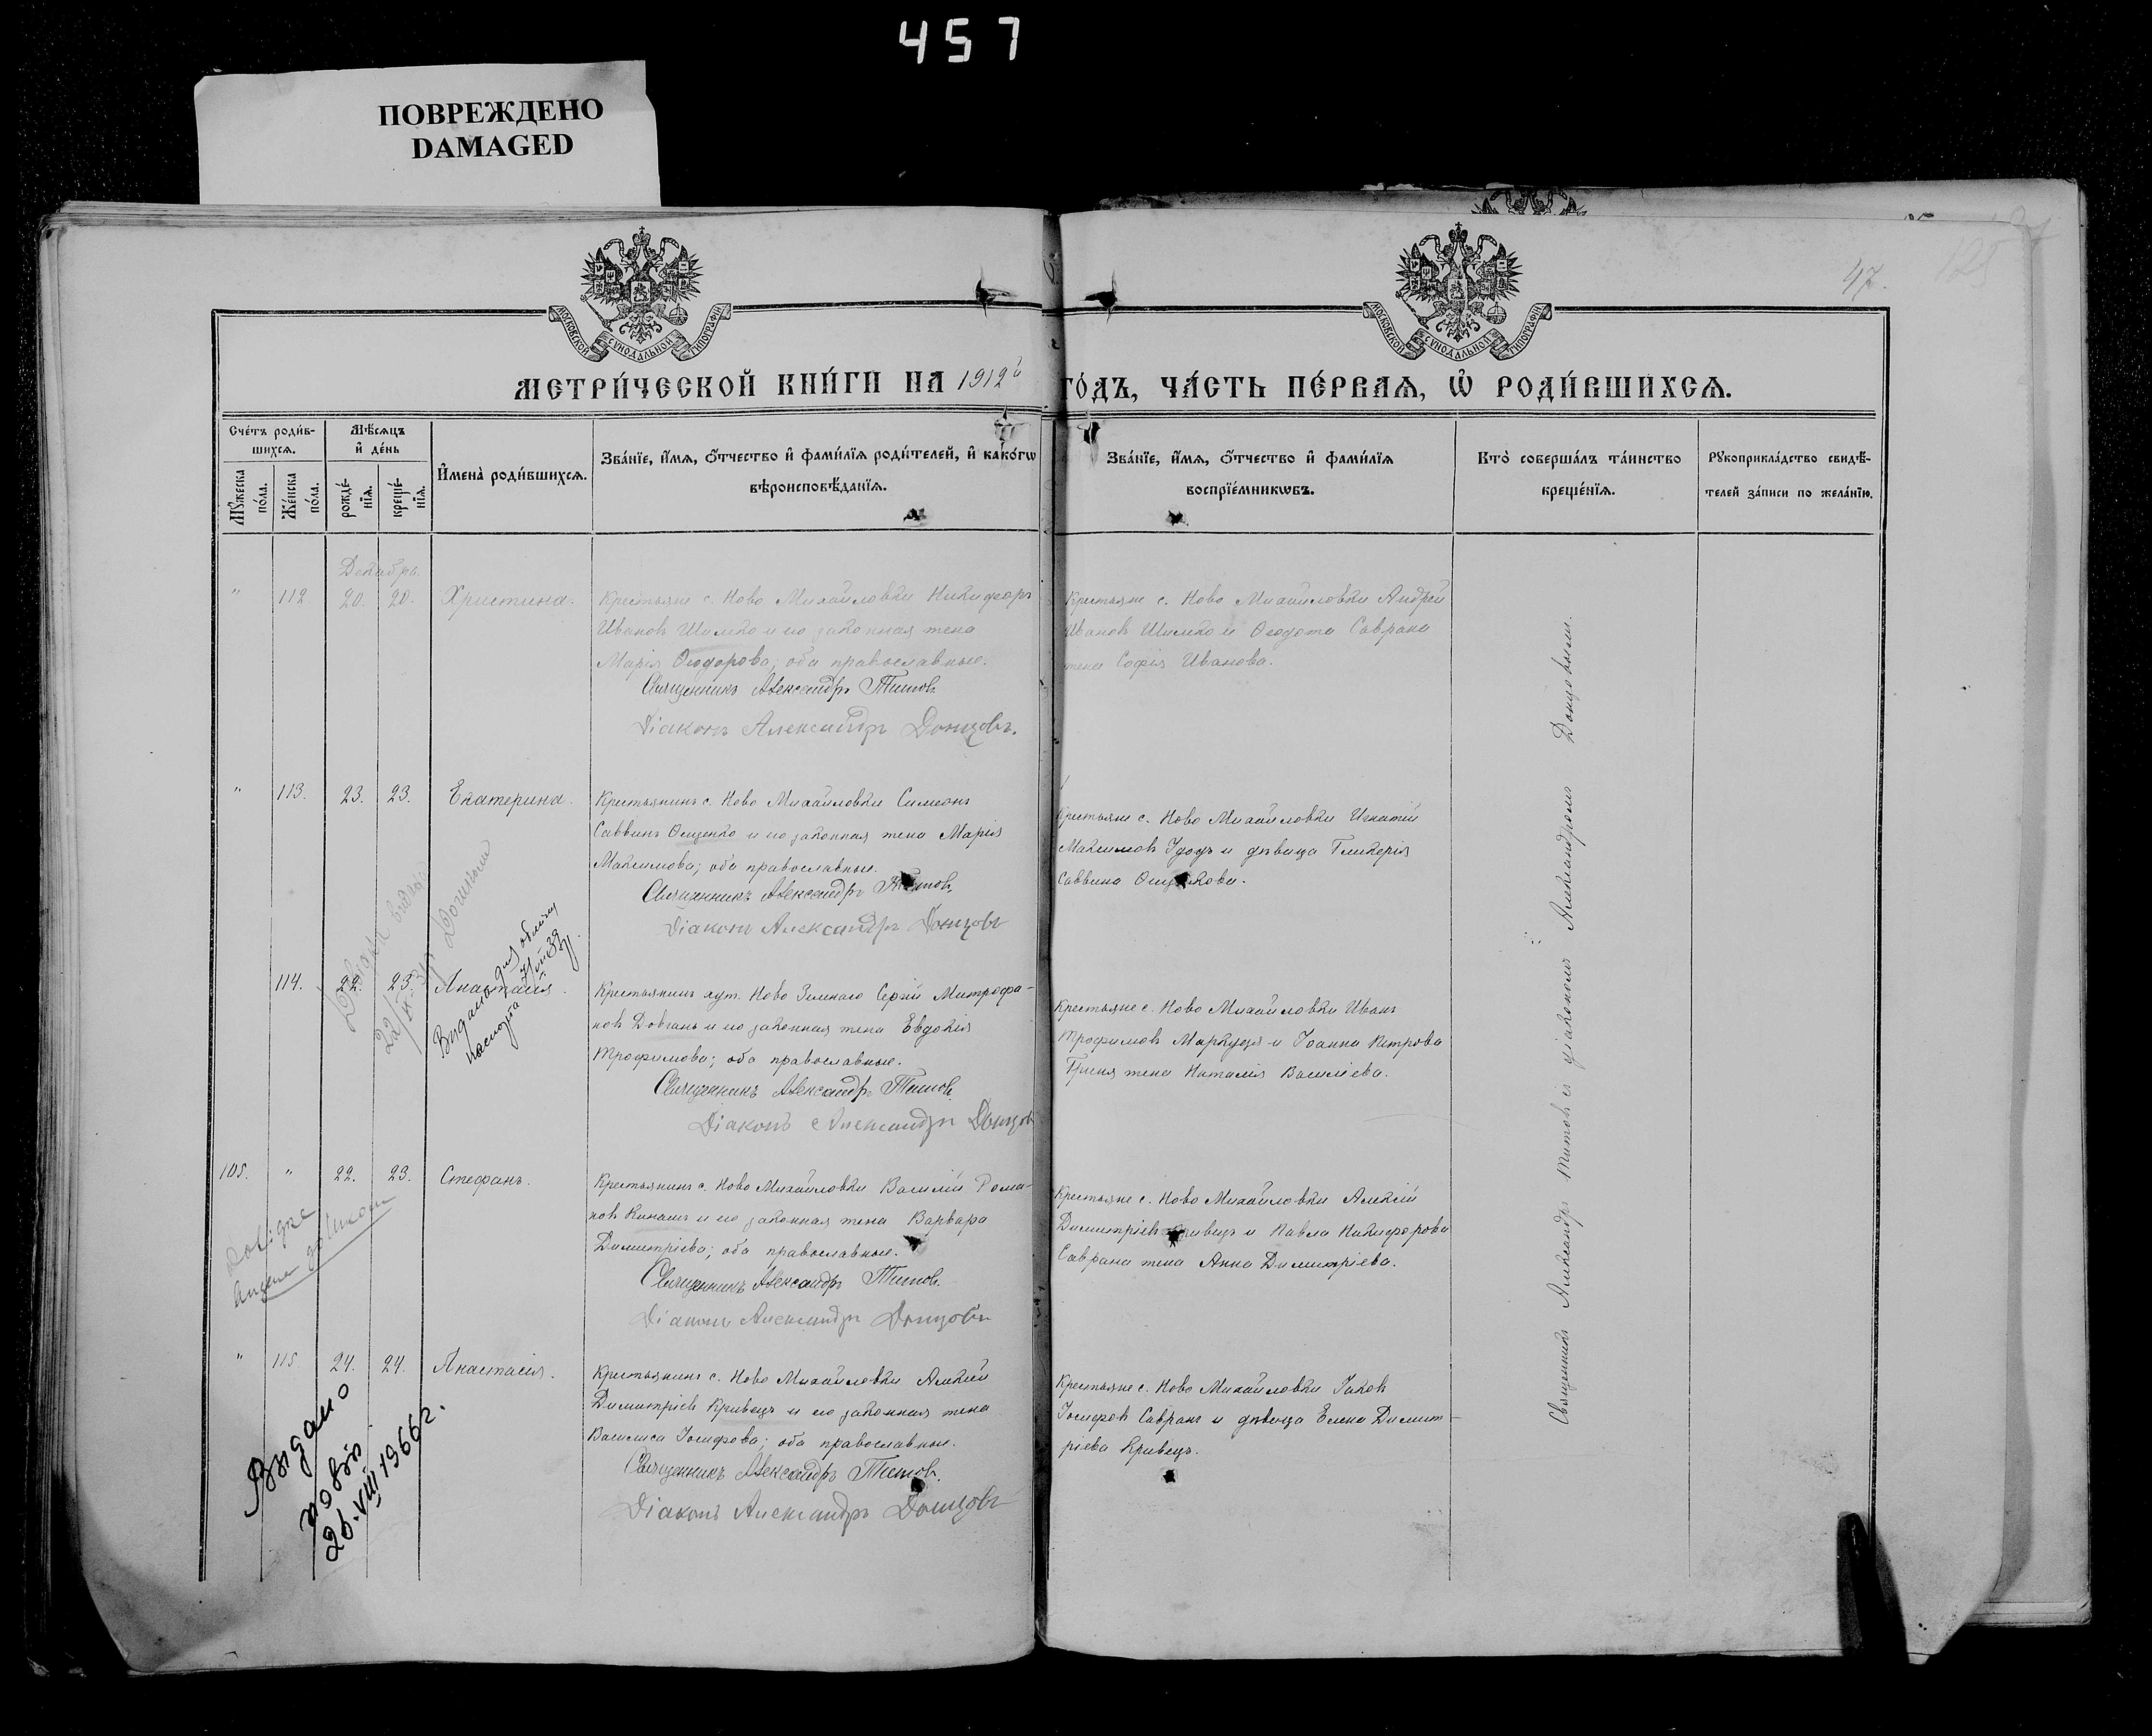 457
ПОВРЕЖДЕНО
DAMAGED
47.
125
МОСКОВСКОЙ СУНОДАЛЬНОЙ ТИПОГРАФІИ
МОСКОВСКОЙ СУНОДАЛЬНОЙ ТИПОГРАФІИ
МЕТРИ́ЧЕСКОЙ КНИ́ГИ НА 1912й ГО́ДЪ, ЧА́СТЬ ПЕ́РВАѦ, Ѡ РОДИ́ВШИХСѦ.
Сче́тъ роди́в-
шихсѧ.
Мꙋ́жеска по́ла.
Же́нска по́ла.
Мѣ́сѧцъ
и҆ де́нь
рожде́-
нїѧ.
креще́-
нїѧ.
И҆мена̀ роди́вшихсѧ.
Зва́нїе, и҆́мѧ, ѻ҆́тчество и҆ фами́лїѧ роди́телей, и҆ како́гѡ
вѣроисповѣ́данїѧ.
Зва́нїе, и҆́мѧ, ѻ҆́тчество и҆ фами́лїѧ
воспрїе́мникѡвъ.
Кто̀ соверша́лъ та́инство
креще́нїѧ.
Рꙋкоприкла́дство свидѣ́-
телей за́писи по жела́нїю.
Декабрь.
" 112 20. 20. Христина.
Крестьяне с. Ново Михайловки Никифоръ
Ивановъ Шилко и его законная жена
Марія Ѳеодорова, оба православные.
Священникъ Александръ Титовъ
Діаконъ Александръ Донцовъ.
Крестьяне с. Ново Михайловки Андрей
Ивановъ Шилко и Ѳеодота Саврана
жена Софія Иванова.
" 113. 23. 23. Екатерина.
Крестьянинъ с. Ново Михайловки Симеонъ
Саввинъ Ощенко и его законная жена Марія
Максимова; оба православные.
Священникъ Александръ Титовъ
Діаконъ Александръ Донцовъ
Крестьяне с. Ново Михайловки Игнатій
Максимовъ Удодъ и дѣвица Гликерія
Саввина
114. 22. 23. Анастасія.
Видано для обміну
паспорта
Крестьянинъ хут. Ново Зеленаго Сергій Митрофа-
новъ Довгань и его законная жена Евдокія
Трофимова; оба православные.
Священникъ Александръ Титовъ
Діаконъ Александръ Донцовъ
Крестьяне с. Ново Михайловки Иванъ
Трофимовъ и Іоанна Петрова
жена Наталія Василіева.
105. " 22. 23. Стефанъ.
Довідка
Крестьянинъ с. Ново Михайловки Василій Рома-
новъ Кинашъ и его законная жена Варвара
Димитріева; оба православные.
Священникъ Александръ Титовъ.
Діаконъ Александръ Донцовъ
Крестьяне с. Ново Михайловки Алексій
Димитріевъ Кривецъ и Павла Никифорова
Саврана жена Анна Димитріева.
" 115. 24. 24. Анастасія.
Видано
повт.
26.VIII 1966 г.
Крестьянинъ с. Ново Михайловки Алексій
Димитріевъ Кривецъ и его законная жена
Василиса Іосифова; оба православные.
Священникъ Александръ Титовъ.
Діаконъ Александръ Донцовъ
Крестьяне с. Ново Михайловки Іаковъ
Іосифовъ Савранъ и дѣвица Елена Димит-
ріева Кривецъ.
Священникъ Александръ Титовъ съ діакономъ Александромъ Донцовымъ.